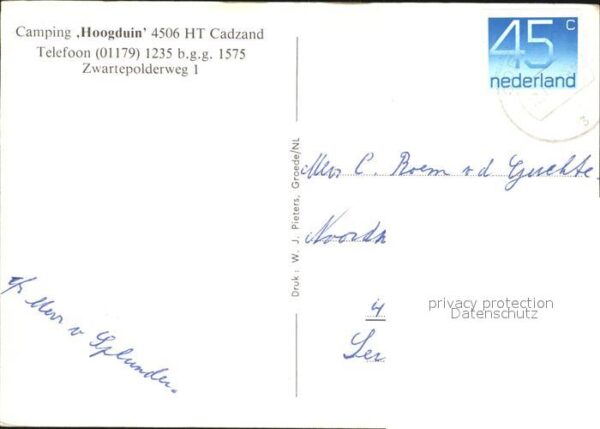 Camping ‚Hoogduin’ 4506 HT Cadzand
Telefoon (01179) 1235 b.g.g. 1575
Zwartepolderweg 1
45 c
nederland
3
Druk: W. J. Pieters, Groede/NL
Mevr C. Roem v d Guchte
Noordh
4
Ser
privacy protection
Datenschutz
Mevr v Splunder.